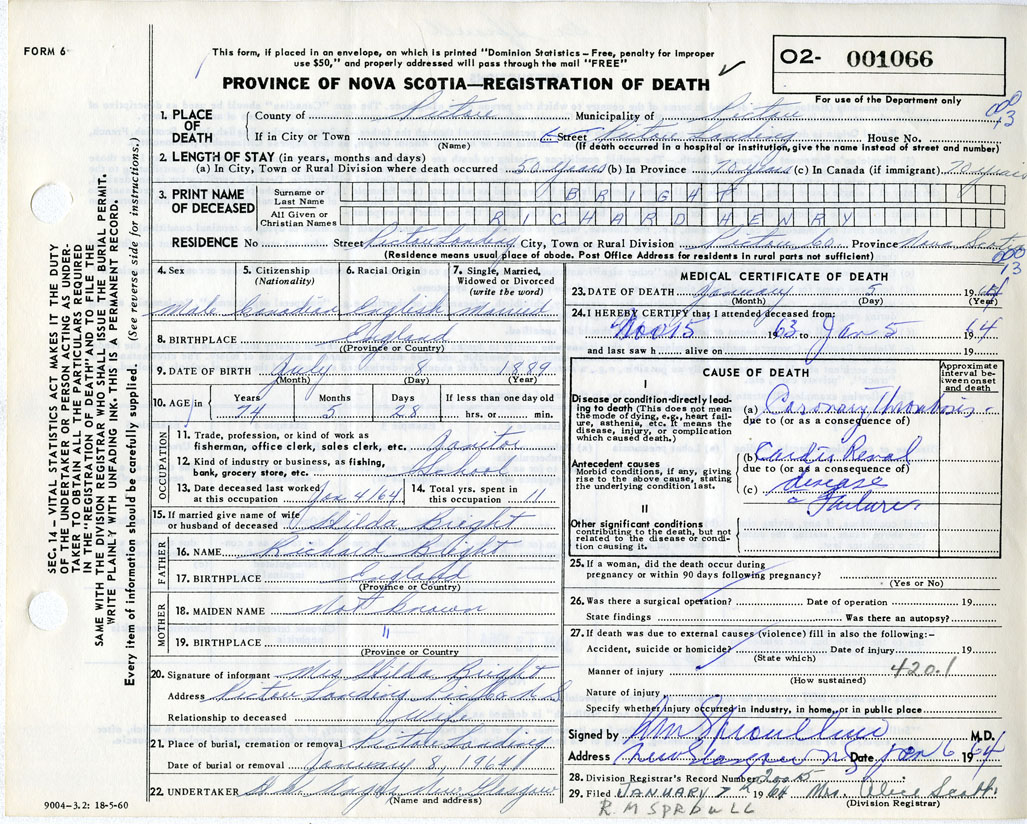 FORM 6
This form, if placed in an envelope, on which is printed "Dominion Statistics – Free, penalty for improper
use $50," and properly addressed will pass through the mail "FREE"
PROVINCE OF NOVA SCOTIA—REGISTRATION OF DEATH
O2- 001066
For use of the Department only
1. PLACE OF DEATH
County of Pictou Municipality of Pictou
If in City or Town (Name) Street Pictou Landing House No.
(If death occurred in a hospital or institution, give the name instead of street and number)
2. LENGTH OF STAY (in years, months and days)
(a) In City, Town or Rural Division where death occurred 50 years (b) In Province 70 years (c) In Canada (if immigrant) 70 years
3. PRINT NAME OF DECEASED
Surname or Last Name BRIGHT
All Given or Christian Names RICHARD HENRY
RESIDENCE No Street Pictou Landing City, Town or Rural Division Pictou Co Province Nova Scotia
(Residence means usual place of abode. Post Office Address for residents in rural parts not sufficient)
4. Sex
Male
5. Citizenship (Nationality)
Canadian
6. Racial Origin
English
7. Single, Married, Widowed or Divorced (write the word)
Married
8. BIRTHPLACE England
(Province or Country)
9. DATE OF BIRTH July 8 1889
(Month) (Day) (Year)
10. AGE in Years 74 Months 5 Days 28 If less than one day old hrs. or min.
OCCUPATION
11. Trade, profession, or kind of work as
fisherman, office clerk, sales clerk, etc. Janitor
12. Kind of industry or business, as fishing,
bank, grocery store, etc. School
13. Date deceased last worked
at this occupation Jan 4/64
14. Total yrs. spent in
this occupation 11
15. If married give name of wife
or husband of deceased Hilda Bright
FATHER
16. NAME Richard Bright
17. BIRTHPLACE England
(Province or Country)
MOTHER
18. MAIDEN NAME Not known
19. BIRTHPLACE "
(Province or Country)
20. Signature of informant Mrs Hilda Bright
Address Pictou Landing Pict Co N S
Relationship to deceased Wife
21. Place of burial, cremation or removal Pictou Landing
Date of burial or removal January 8, 1964
22. UNDERTAKER New Glasgow
(Name and address)
9004–3.2: 18-5-60
MEDICAL CERTIFICATE OF DEATH
23. DATE OF DEATH January 5 1964
(Month) (Day) (Year)
24. I HEREBY CERTIFY that I attended deceased from:
Nov 15 1963 to Jan 5 1964
and last saw h alive on 19
CAUSE OF DEATH
Approximate interval between onset and death
I
Disease or condition directly leading to death (This does not
mean the mode of dying, e.g., heart failure, asthenia, etc. It means the
disease, injury, or complication which caused death.)
(a) Coronary Thrombosis
due to (or as a consequence of)
Antecedent causes
Morbid conditions, if any, giving
rise to the above cause, stating
the underlying condition last.
(b) Cardio Renal
due to (or as a consequence of)
(c) disease
Failure
II
Other significant conditions
contributing to the death, but not
related to the disease or condition causing it.
25. If a woman, did the death occur during
pregnancy or within 90 days following pregnancy?
(Yes or No)
26. Was there a surgical operation? Date of operation 19
State findings Was there an autopsy?
27. If death was due to external causes (violence) fill in also the following:–
Accident, suicide or homicide? Date of injury 19
(State which)
Manner of injury 420.1
(How sustained)
Nature of injury
Specify whether injury occurred in industry, in home, or in public place
Signed by M.D.
Address New Glasgow NS Date Jan 6 1964
28. Division Registrar's Record Number
29. Filed JANUARY 7th 1964 Mrs. Alice Scott
(Division Registrar)
R.M SPROULL
SEC. 14 – VITAL STATISTICS ACT MAKES IT THE DUTY
OF THE UNDERTAKER OR PERSON ACTING AS UNDER-
TAKER TO OBTAIN ALL THE PARTICULARS REQUIRED
IN THE "REGISTRATION OF DEATH" AND TO FILE THE
SAME WITH THE DIVISION REGISTRAR WHO SHALL ISSUE THE BURIAL PERMIT.
WRITE PLAINLY WITH UNFADING INK. THIS IS A PERMANENT RECORD.
Every item of information should be carefully supplied. (See reverse side for instructions.)